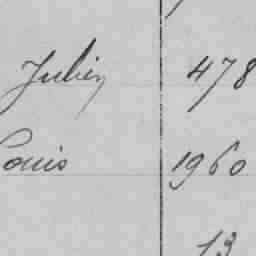 Julien 478
Louis 1960
13